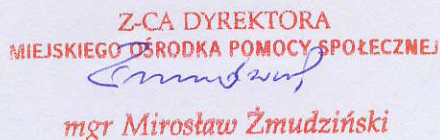 Z-CA DYREKTORA
MIEJSKIEGO OŚRODKA POMOCY SPOŁECZNEJ
mgr Mirosław Żmudziński